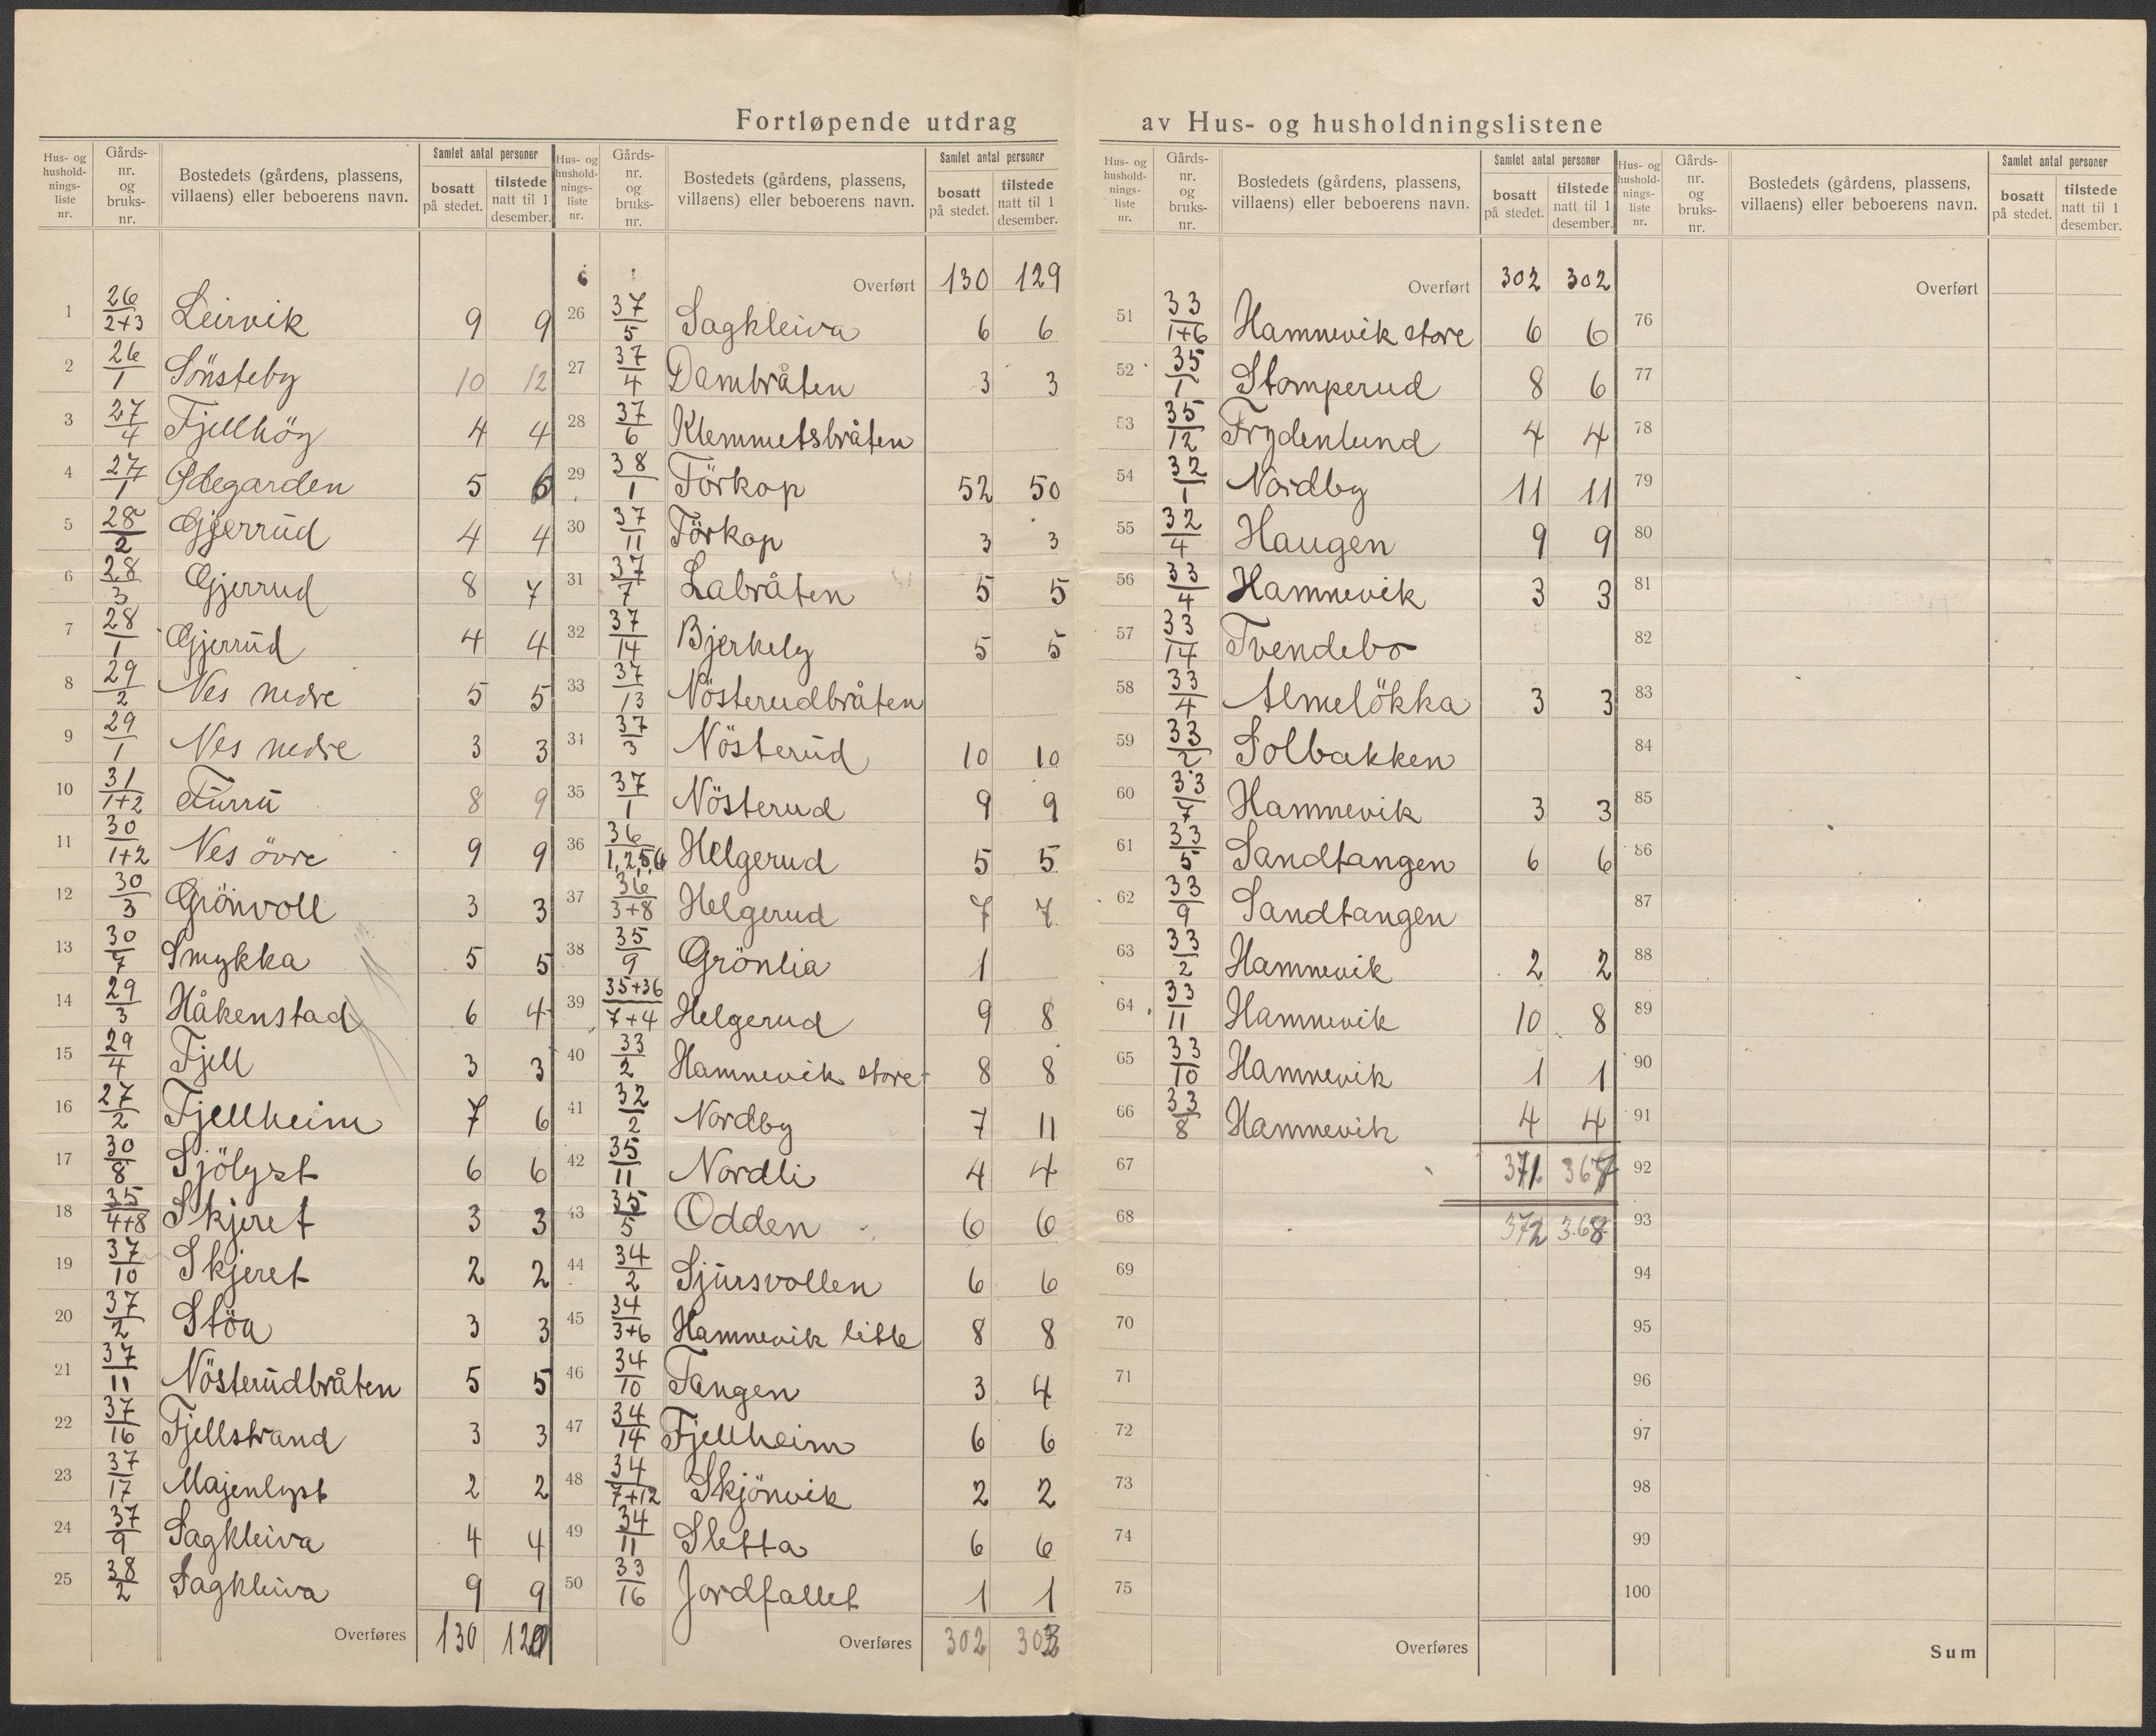 Fortløpende utdrag av Hus- og husholdningslistene
Hus- og husholdnings-liste nr. | Gårds-nr. og bruks-nr. | Bostedets (gårdens, plassens, villaens) eller beboerens navn. | Samlet antal personer | bosatt på stedet. | tilstede natt til 1 desember.
1 26/2+3 Leirvik 9 9
2 26/1 Sönsteby 10 12
3 27/4 Fjellhög 4 4
4 27/1 Ødegarden 5 6
5 28/2 Gjerrud 4 4
6 28/3 Gjerrud 8 7
7 28/1 Gjerrud 4 4
8 29/2 Nes nedre 5 5
9 29/1 Nes nedre 3 3
10 31/1+2 Furru 8 9
11 30/1+2 Nes övre 9 9
12 30/3 Grönvoll 3 3
13 30/7 Smykka 5 5
14 29/3 Håkenstad 6 4
15 29/4 Fjell 3 3
16 27/2 Fjellheim 7 6
17 30/8 Sjölyst 6 6
18 35/4+8 Skjeret 3 3
19 37/10 Skjeret 2 2
20 37/2 Stöa 3 3
21 37/11 Nösterudbråten 5 5
22 37/16 Fjellstrand 3 3
23 37/17 Majenlyst 2 2
24 37/9 Sagkleiva 4 4
25 38/2 Sagkleiva 9 9
Overføres 130 129
Hus- og husholdnings-liste nr. | Gårds-nr. og bruks-nr. | Bostedets (gårdens, plassens, villaens) eller beboerens navn. | Samlet antal personer | bosatt på stedet. | tilstede natt til 1 desember.
Overført 130 129
26 37/5 Sagkleiva 6 6
27 37/4 Dambråten 3 3
28 37/6 Klemmetsbråten
29 38/1 Förkop 52 50
30 37/11 Förkop 3 3
31 37/7 Labråten 5 5
32 37/14 Bjerkely 5 5
33 37/13 Nösterudbråten
34 37/3 Nösterud 10 10
35 37/1 Nösterud 9 9
36 36/1,2,5,6 Helgerud 5 5
37 36/3+8 Helgerud 7 7
38 35/9 Grönlia 1
39 35+36/7+4 Helgerud 9 8
40 33/2 Hamnevik store 8 8
41 32/2 Nordby 7 11
42 35/11 Nordli 4 4
43 35/5 Odden 6 6
44 34/2 Sjursvollen 6 6
45 34/3+6 Hamnevik litle 8 8
46 34/10 Tangen 3 4
47 34/14 Fjellheim 6 6
48 34/7+12 Skjönvik 2 2
49 34/11 Sletta 6 6
50 33/16 Jordfallet 1 1
Overføres 302 302
Hus- og husholdnings-liste nr. | Gårds-nr. og bruks-nr. | Bostedets (gårdens, plassens, villaens) eller beboerens navn. | Samlet antal personer | bosatt på stedet. | tilstede natt til 1 desember.
Overført 302 302
51 33/1+6 Hamnevik store 6 6
52 35/1 Stomperud 8 6
53 35/12 Frydenlund 4 4
54 32/1 Nordby 11 11
55 32/4 Haugen 9 9
56 33/4 Hamnevik 3 3
57 33/14 Tvendebo
58 33/4 Almelökka 3 3
59 33/2 Solbakken
60 33/7 Hamnevik 3 3
61 33/5 Sandtangen 6 6
62 33/9 Sandtangen
63 33/2 Hamnevik 2 2
64 33/11 Hamnevik 10 8
65 33/10 Hamnevik 1 1
66 33/8 Hamnevik 4 4
67 371 367
68 372 368
69
70
71
72
73
74
75
Overføres
Hus- og husholdnings-liste nr. | Gårds-nr. og bruks-nr. | Bostedets (gårdens, plassens, villaens) eller beboerens navn. | Samlet antal personer | bosatt på stedet. | tilstede natt til 1 desember.
Overført
76
77
78
79
80
81
82
83
84
85
86
87
88
89
90
91
92
93
94
95
96
97
98
99
100
Sum